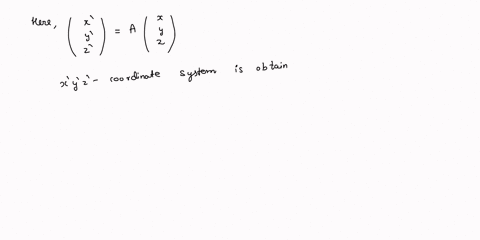 Here, (x` y` z`) = A (x y z)
x`y`z` - coordinate system is obtain